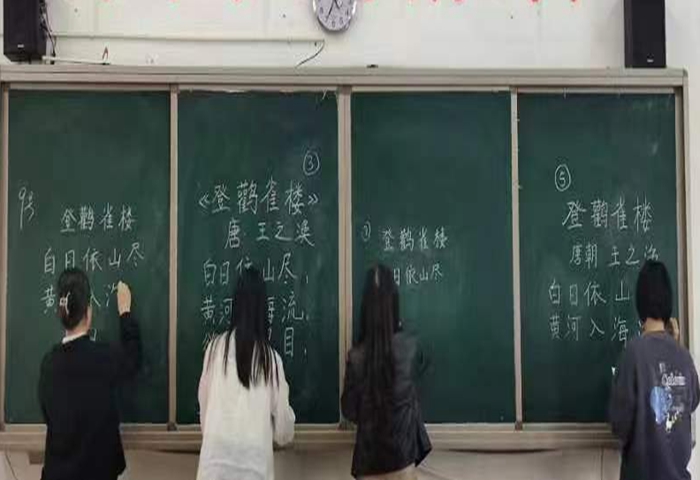 9号
登鹳雀楼
白日依山尽
黄 入
③
《登鹳雀楼》
唐 王之涣
白日依山尽，
黄河 海流，
目，
登鹳雀楼
日依山尽
⑤
登鹳雀楼
唐朝 王之涣
白日依山
黄河入海